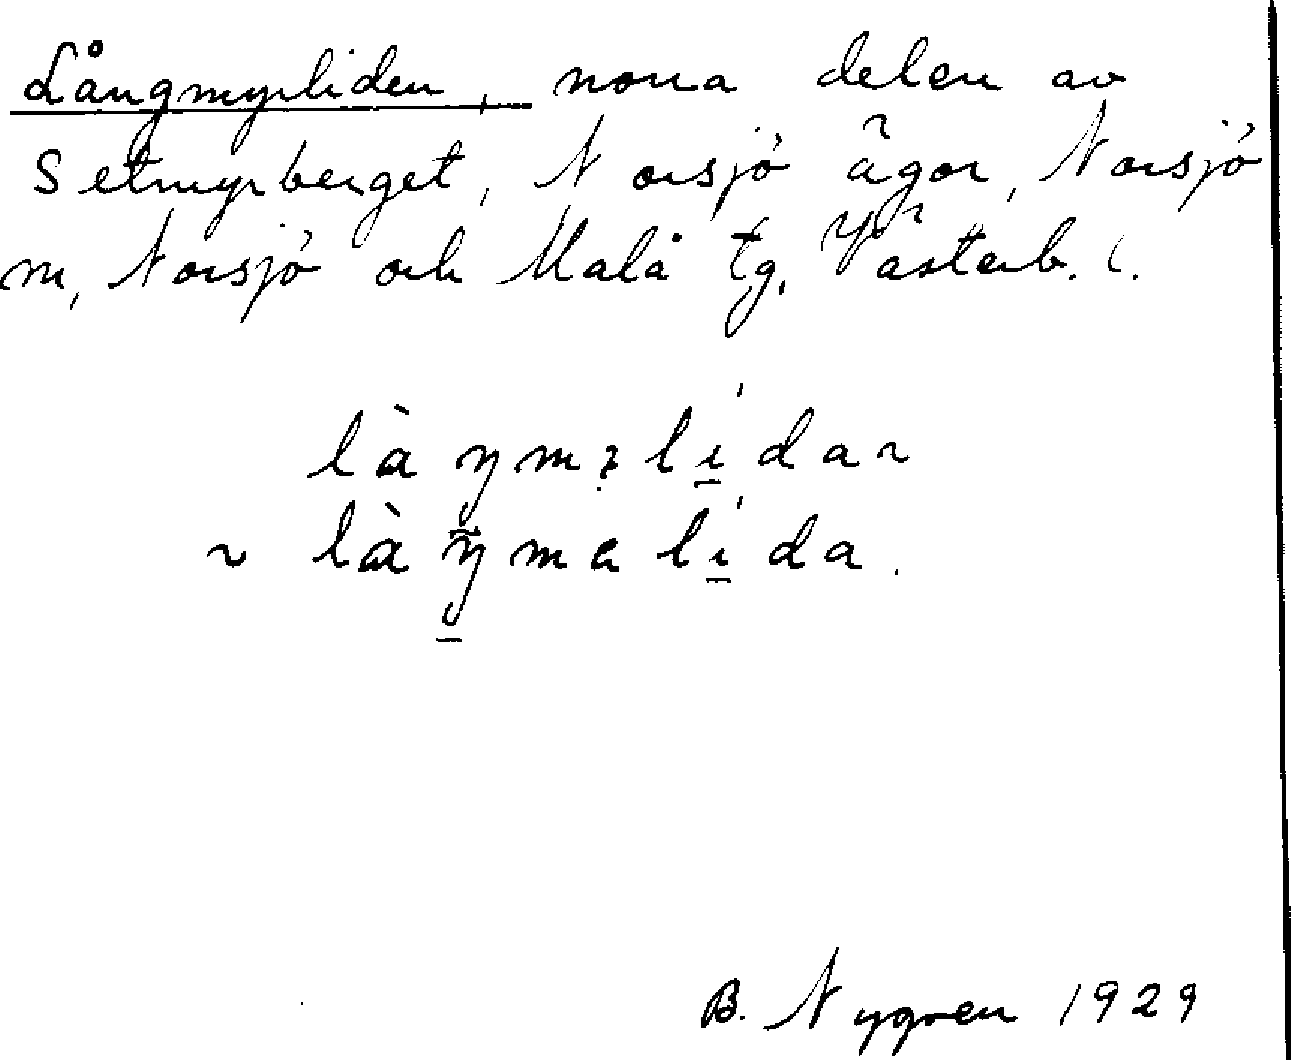 Långmyrliden, norra delen av
Setmyrberget, Norsjö ägor, Norsjö
m, Norsjö och Malå tg. Västerb. l.
B. Nygren 1929